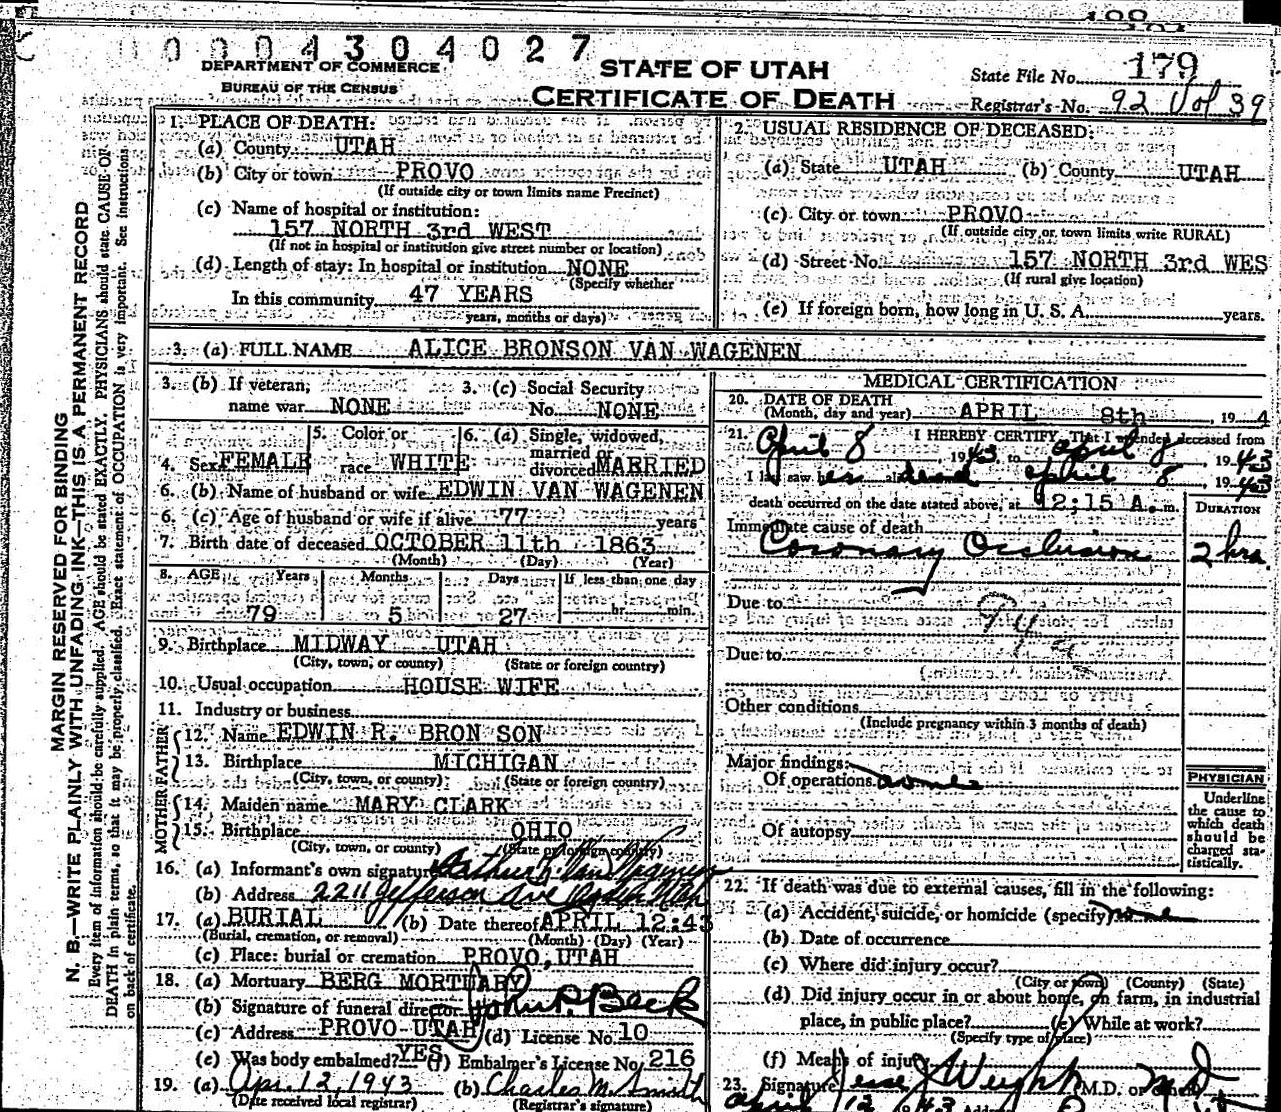 0004304027
DEPARTMENT OF COMMERCE
BUREAU OF THE CENSUS
STATE OF UTAH
CERTIFICATE OF DEATH
State File No. 179
Registrar's No. 92 Vol 39
MARGIN RESERVED FOR BINDING
N. B.—WRITE PLAINLY WITH UNFADING INK—THIS IS A PERMANENT RECORD
Every item of information should be carefully supplied. AGE should be stated EXACTLY. PHYSICIANS should state CAUSE OF
DEATH in plain terms, so that it may be properly classified. Exact statement of OCCUPATION is very important. See instructions
on back of certificate.
1. PLACE OF DEATH:
(a) County UTAH
(b) City or town PROVO
(If outside city or town limits name Precinct)
(c) Name of hospital or institution:
157 NORTH 3rd WEST
(If not in hospital or institution give street number or location)
(d) Length of stay: In hospital or institution NONE
(Specify whether
In this community 47 YEARS
years, months or days)
2. USUAL RESIDENCE OF DECEASED:
(a) State UTAH (b) County UTAH
(c) City or town PROVO
(If outside city or town limits write RURAL)
(d) Street No. 157 NORTH 3rd WES
(If rural give location)
(e) If foreign born, how long in U. S. A. years.
3. (a) FULL NAME ALICE BRONSON VAN WAGENEN
3. (b) If veteran, name war NONE
3. (c) Social Security No. NONE
4. Sex FEMALE
5. Color or race WHITE
6. (a) Single, widowed, married or divorced MARRIED
6. (b) Name of husband or wife EDWIN VAN WAGENEN
6. (c) Age of husband or wife if alive 77 years
7. Birth date of deceased OCTOBER 11th 1863
(Month) (Day) (Year)
8. AGE Years Months Days If less than one day
79 5 27 hr. min.
9. Birthplace MIDWAY UTAH
(City, town, or county) (State or foreign country)
10. Usual occupation HOUSE WIFE
11. Industry or business
FATHER
12. Name EDWIN R. BRON SON
13. Birthplace MICHIGAN
(City, town, or county) (State or foreign country)
MOTHER
14. Maiden name MARY CLARK
15. Birthplace OHIO
(City, town, or county) (State or foreign country)
16. (a) Informant's own signature Arthur Van Wagenen
(b) Address 2211 Jefferson Ave Ogden Utah
17. (a) BURIAL (b) Date thereof APRIL 12:43
(Burial, cremation, or removal) (Month) (Day) (Year)
(c) Place: burial or cremation PROVO, UTAH
18. (a) Mortuary BERG MORTUARY
(b) Signature of funeral director John P. Beck
(c) Address PROVO UTAH (d) License No. 10
(e) Was body embalmed? YES (f) Embalmer's License No. 216
19. (a) Apr. 12, 1943 (b) Charles M. Smith
(Date received local registrar) (Registrar's signature)
MEDICAL CERTIFICATION
20. DATE OF DEATH
(Month, day and year) APRIL 8th, 19 4
21. I HEREBY CERTIFY, That I attended deceased from
April 8 1943, to April 8, 1943
I last saw her alive dead April 8, 1943
death occurred on the date stated above, at 12;15 A. m.
DURATION
Immediate cause of death
Coronary Occlusion 2 hrs.
Due to
94a
Due to
Other conditions
(Include pregnancy within 3 months of death)
Major findings:
Of operations none
Of autopsy
PHYSICIAN
Underline
the cause to
which death
should be
charged sta-
tistically.
22. If death was due to external causes, fill in the following:
(a) Accident, suicide, or homicide (specify) none
(b) Date of occurrence
(c) Where did injury occur?
(City or town) (County) (State)
(d) Did injury occur in or about home, on farm, in industrial
place, in public place? (e) While at work?
(Specify type of place)
(f) Means of injury
23. Signature Jesse J Weight M.D. or other M D
April 12 1943